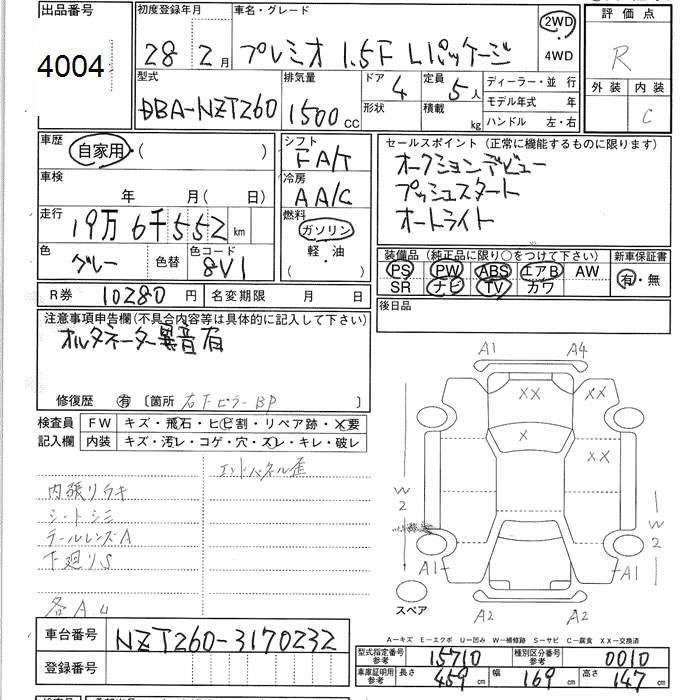 出品番号
4004
初度登録年月
28年 2月
車名・グレード
プレミオ 1.5F Lパッケージ
2WD
4WD
評価点
R
外装 内装
C
型式
DBA-NZT260
排気量
1500 CC
ドア 4
形状
定員 5人
積載 kg
ディーラー・並行
モデル年式 年
ハンドル 左・右
車歴
自家用・( )
車検
年 月( 日)
走行
19万6千552 km
色
グレー
色替
色コード
8V1
シフト
FA/T
冷房
AA/C
燃料
ガソリン
軽・油
( )
セールスポイント(正常に機能するものに限ります)
オークションデビュー
プッシュスタート
オートライト
装備品(純正品に限り○をつけて下さい)
PS PW ABS エアB AW
SR ナビ TV カワ
新車保証書
有・無
後日品
R券 10280円
名変期限 月 日
注意事項申告欄(不具合内容等は具体的に記入して下さい)
オルタネーター異音有
修復歴 有 〔箇所 右下ピラーBP 〕
検査員
記入欄
FW キズ・飛石・ヒビ割・リペア跡・×要
内装 キズ・汚レ・コゲ・穴・スレ・キレ・破レ
エンドパネル歪
内張リウキ
シートシミ
テールレンズA
下廻りS
各A.U
A1 A4
XX XX
X
XX
W2
W2
A1 A1
A2 A2
スペア
車台番号
NZT260-3170232
登録番号
A-キズ E-エクボ U-凹み W-補修跡 S-サビ C-腐食 XX-交換済
型式指定番号
参考
15710
種別区分番号
参考
0010
車庫証明用
参考
長さ 459 cm
幅 169 cm
高さ 147 cm